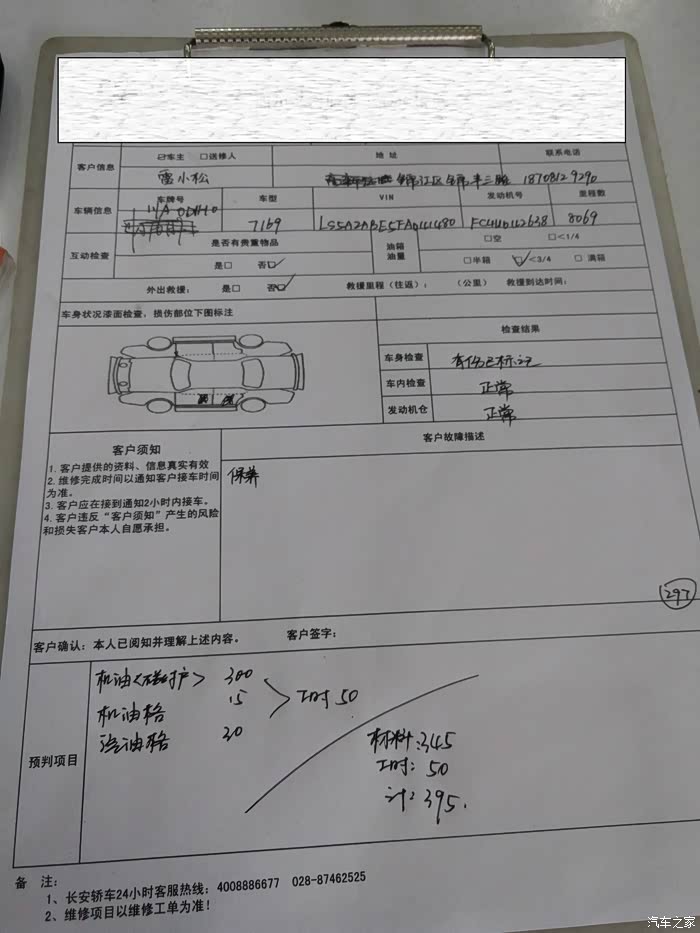 客户信息 ☑车主 □送修人 地 址 联系电话
雷小松 锦江区 锦 丰三路 18708129290
车辆信息 车牌号 车型 VIN 发动机号 里程数
7169 8069
互动检查 是否有贵重物品 油箱油量 □空 □<1/4
是□ 否☑ □半箱 ☑<3/4 □ 满箱
外出救援： 是□ 否☑ 救援里程（往返）： （公里） 救援到达时间：
车身状况漆面检查，损伤部位下图标注
检查结果
车身检查 有伤已标记
车内检查 正常
发动机仓 正常
客户须知 客户故障描述
1. 客户提供的资料、信息真实有效
2. 维修完成时间以通知客户接车时间
为准。
3. 客户应在接到通知2小时内接车。
4. 客户违反“客户须知”产生的风险
和损失客户本人自愿承担。
保养
297
客户确认：本人已阅知并理解上述内容。 客户签字：
预判项目
机油<磁护> 300
机油格 15 工时 50
汽油格 30
材料：345
工时：50
计：395.
备 注：
1、长安轿车24小时客服热线：4008886677 028-87462525
2、维修项目以维修工单为准！
汽车之家